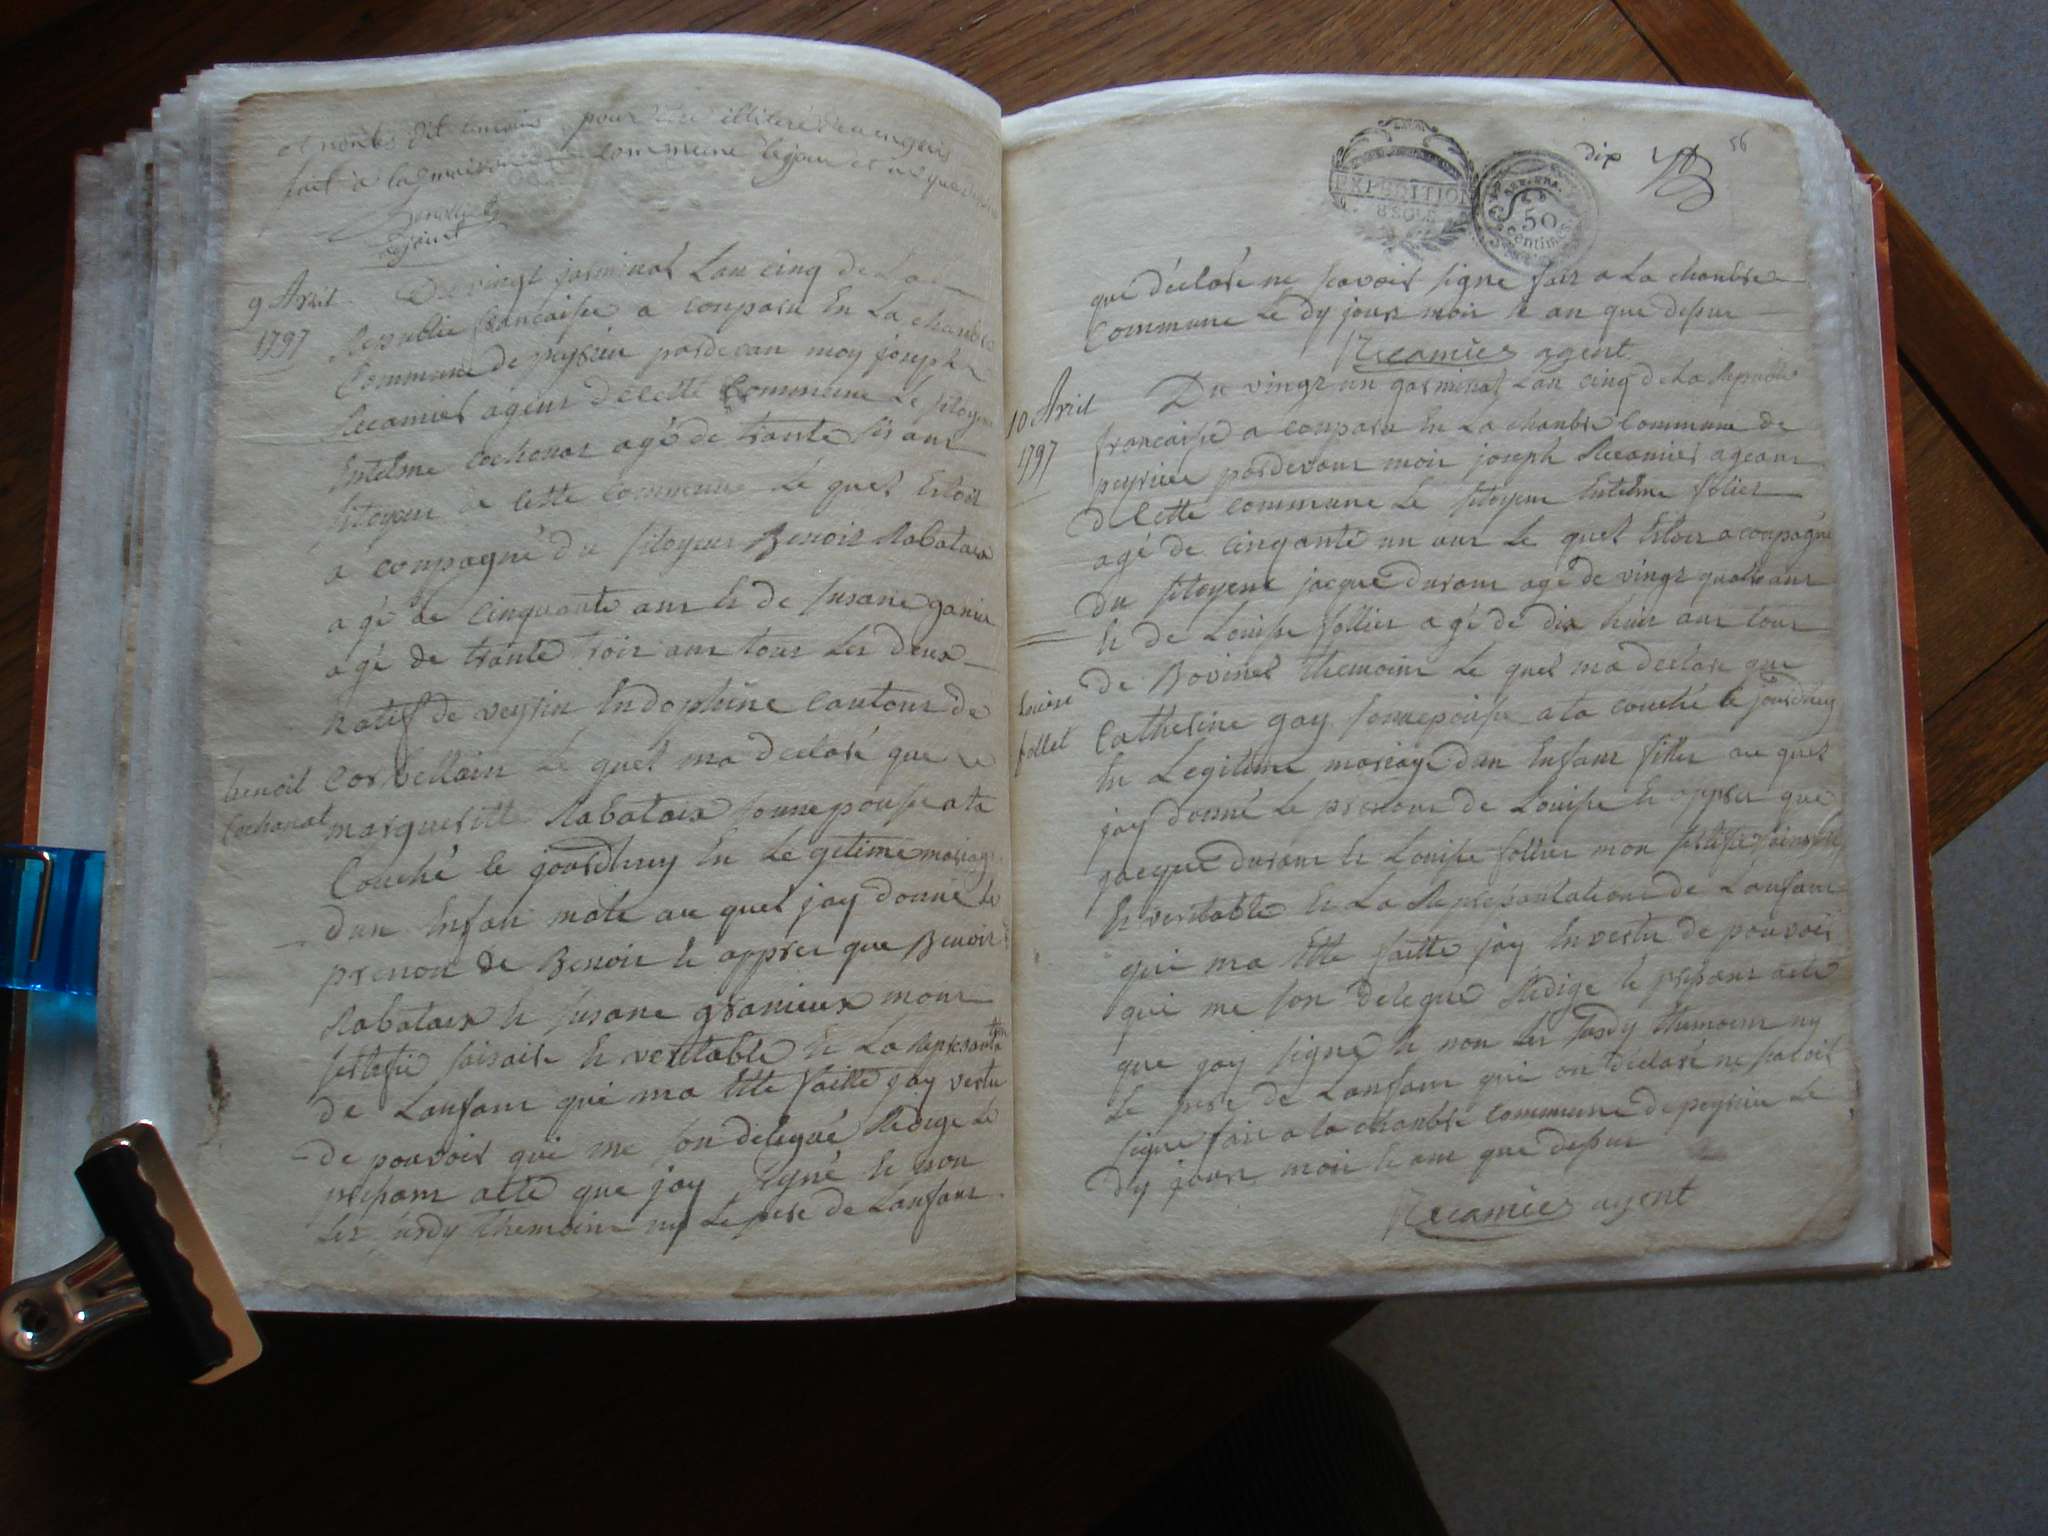 et non les dit temoins pour etre illiteré de ce enquis
fait à la maison commune le jour et an que dessus
adjoint
9 Avril
1797
Du vingt jarminal Lan cinq de La
Republic francaisse a conparu En La chanbre
Commune de peyrieu pardevan moy joseph
Recamier agent de cette Commune Le sitoyen
Entelme Cochonat agé de trante sis ans
sitoyen a cette commune Le quel Estoit
a conpagné du sitoyen Benoit Rabataux
agé de cinquante ans Et de susane
agé de trante trois ans tous Les deux
natif de veyrin En dophine cantons de
benoit
Cochonat
Corvellain Le quel ma declaré que
margueritte Rabataux sonne pousse ata
Couché le jourdhuy En Legetime mariage
dun Enfan male au quel jay donné Le
prenon de Benoit Et appres que Benoit
Rabataux Et susane granieux mont
sertefié Et veritable Et La Represantation
de Lanfant qui ma Ette faitte jay vertu
de pouvoir qui me son delegué Redige Le
presant atte que jay signé Et non
Les susdy themoins ny Le pere de Lanfant
EXPEDITION
8 SOLS
50
Centimes
dix
56
que déclaré ne scavoir signe fait a La chanbre
Commune Le dy jour mois Et an que desus
Recamier agent
10 Avril
1797
Du vingt un garminal Lan cinq de La Republi
francaisse a conparu En La chanbre Commune de
peyrieu pardevant moi joseph Recamier ageant
de Cette commune Le sitoyen Entelme follier
agé de cinqante un ans Le quel Estoit a conpagné
du sitoyent jacque durant agé de vingt quatre ans
Et de Louisse follier agé de dix huit ans tous
de Bovinel themoins Le quel ma declaré que
Louise
follet
Catherine gay sonnepousse ata couché le jourdhuy
En Legitime mariage dun Enfant fille au quel
jay donné Le prenom de Louisse Et appres que
jacque durant Et Louisse follier mon
Et veritable Et La Represantation de Lanfant
qui ma Ette faitte jay En vertu de pouvoir
qui me son delegue Redige le presant acte
que jay signé Et non Les susdy themoins ny
Le pere de Lanfant qui on declaré ne savoir
signe fait a la chanbre commune de peyrieu Le
dy jour mois Et ans que desus
Recamier agent